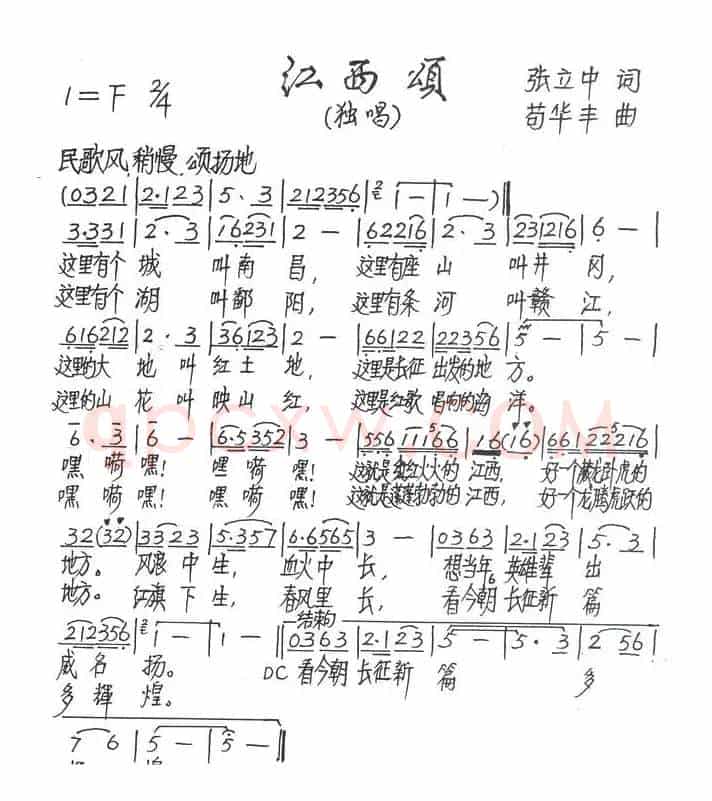 江西颂
(独唱)
1=F 2/4
张立中 词
苟华丰 曲
民歌风 稍慢 颂扬地
(0321|2·123|5·3|212356|1—|1—)‖
3·331|2·3|16231|2—|62216|2·3|231216|6—|
这里有个 城 叫南 昌, 这里有座 山 叫井 冈,
这里有个 湖 叫鄱 阳, 这里有条 河 叫赣 江,
616212|2·3|36123|2—|66122|22356|5—|5—|
这里的大 地 叫 红土 地, 这里是长征 出发的地 方。
这里的山 花 叫 映山 红, 这里是红歌 唱响的海 洋。
6·3|6—|6·5352|3—|556111566|16(16)|661225216|
嘿 嗬 嘿! 嘿 嗬 嘿! 这就是红红火火的 江西, 好一个藏龙卧虎的
嘿 嗬 嘿! 嘿 嗬 嘿! 这就是蓬蓬勃勃的 江西, 好一个龙腾虎跃的
32(32)|3323|5·357|6·6565|3—|0363|2·123|5·3|
地方。 风浪 中 生, 血火中 长, 想当年 英雄辈 出
地方。 红旗 下 生, 春风里 长, 看今朝 长征新 篇
结束句
212356|1—|1—:‖0363|2·123|5—|5·3|2 56|
威 名 扬。 DC 看今朝 长征新 篇 多
多 辉 煌。
7 6|5—|5—‖
辉 煌
QPCXW.COM